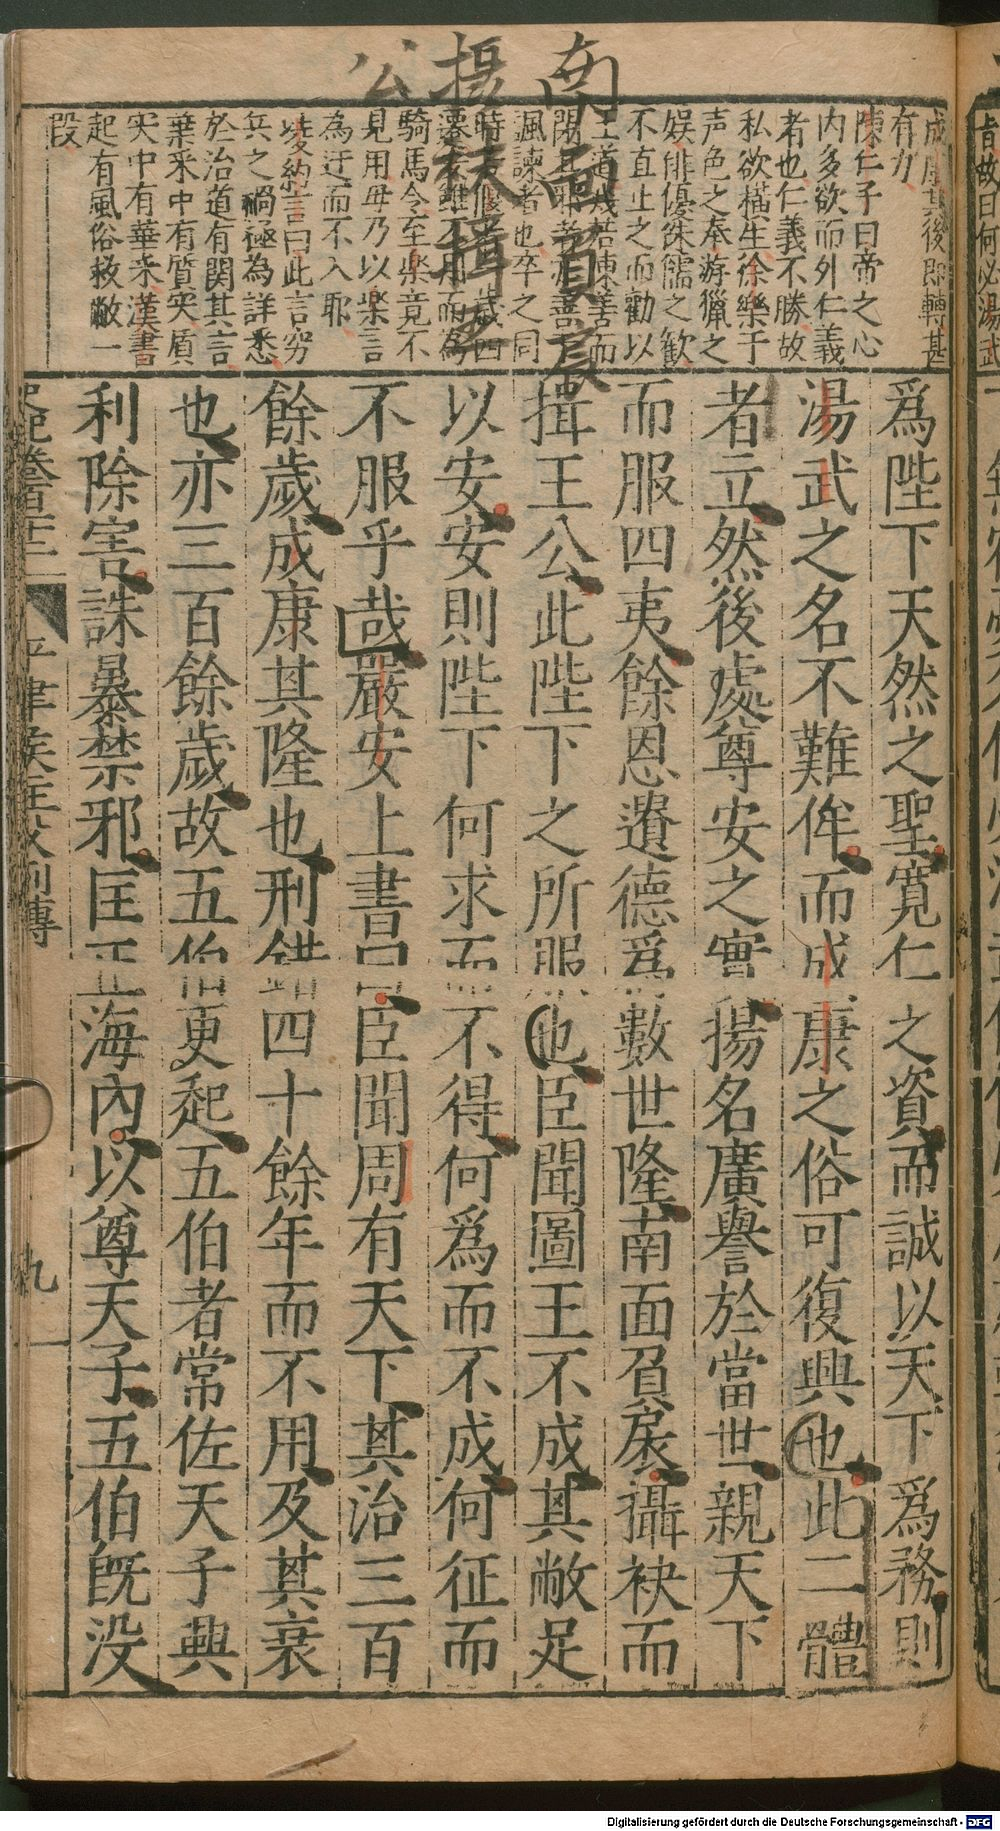 南
攝
公
南面負扆
袂揖王
成康其後即轉甚
有力
陳仁子曰帝之心
内多欲而外仁義
者也仁義不勝故
私欲橫生徐樂于
声色之奉游獵之
娱俳優侏儒之歡
不直止之而勸以
王道幾若陳善而
諷諫者也卒之同
騎馬令至樂竟不
見用毋乃以樂言
為迂而不入耶
凌約言曰此言窮
兵之禍極為詳悉
於治道有関其言
葉采中有質實質
實中有華采漢書
起有風俗救敝一
段
爲陛下天然之聖寛仁之資而誠以天下爲務則
湯武之名不難侔而成康之俗可復興也此二體
者立然後處尊安之實揚名廣譽於當世親天下
而服四夷餘恩遺德爲數世隆南面負扆攝袂而
揖王公此陛下之所服也臣聞圖王不成其敝足
以安安則陛下何求而不得何爲而不成何征而
不服乎哉嚴安上書曰臣聞周有天下其治三百
餘歲成康其隆也刑錯四十餘年而不用及其衰
也亦三百餘歲故五伯更起五伯者常佐天子興
利除害誅暴禁邪匡正海內以尊天子五伯旣没
平津矦主父列傳
九
Digitalisierung gefördert durch die Deutsche Forschungsgemeinschaft - DFG